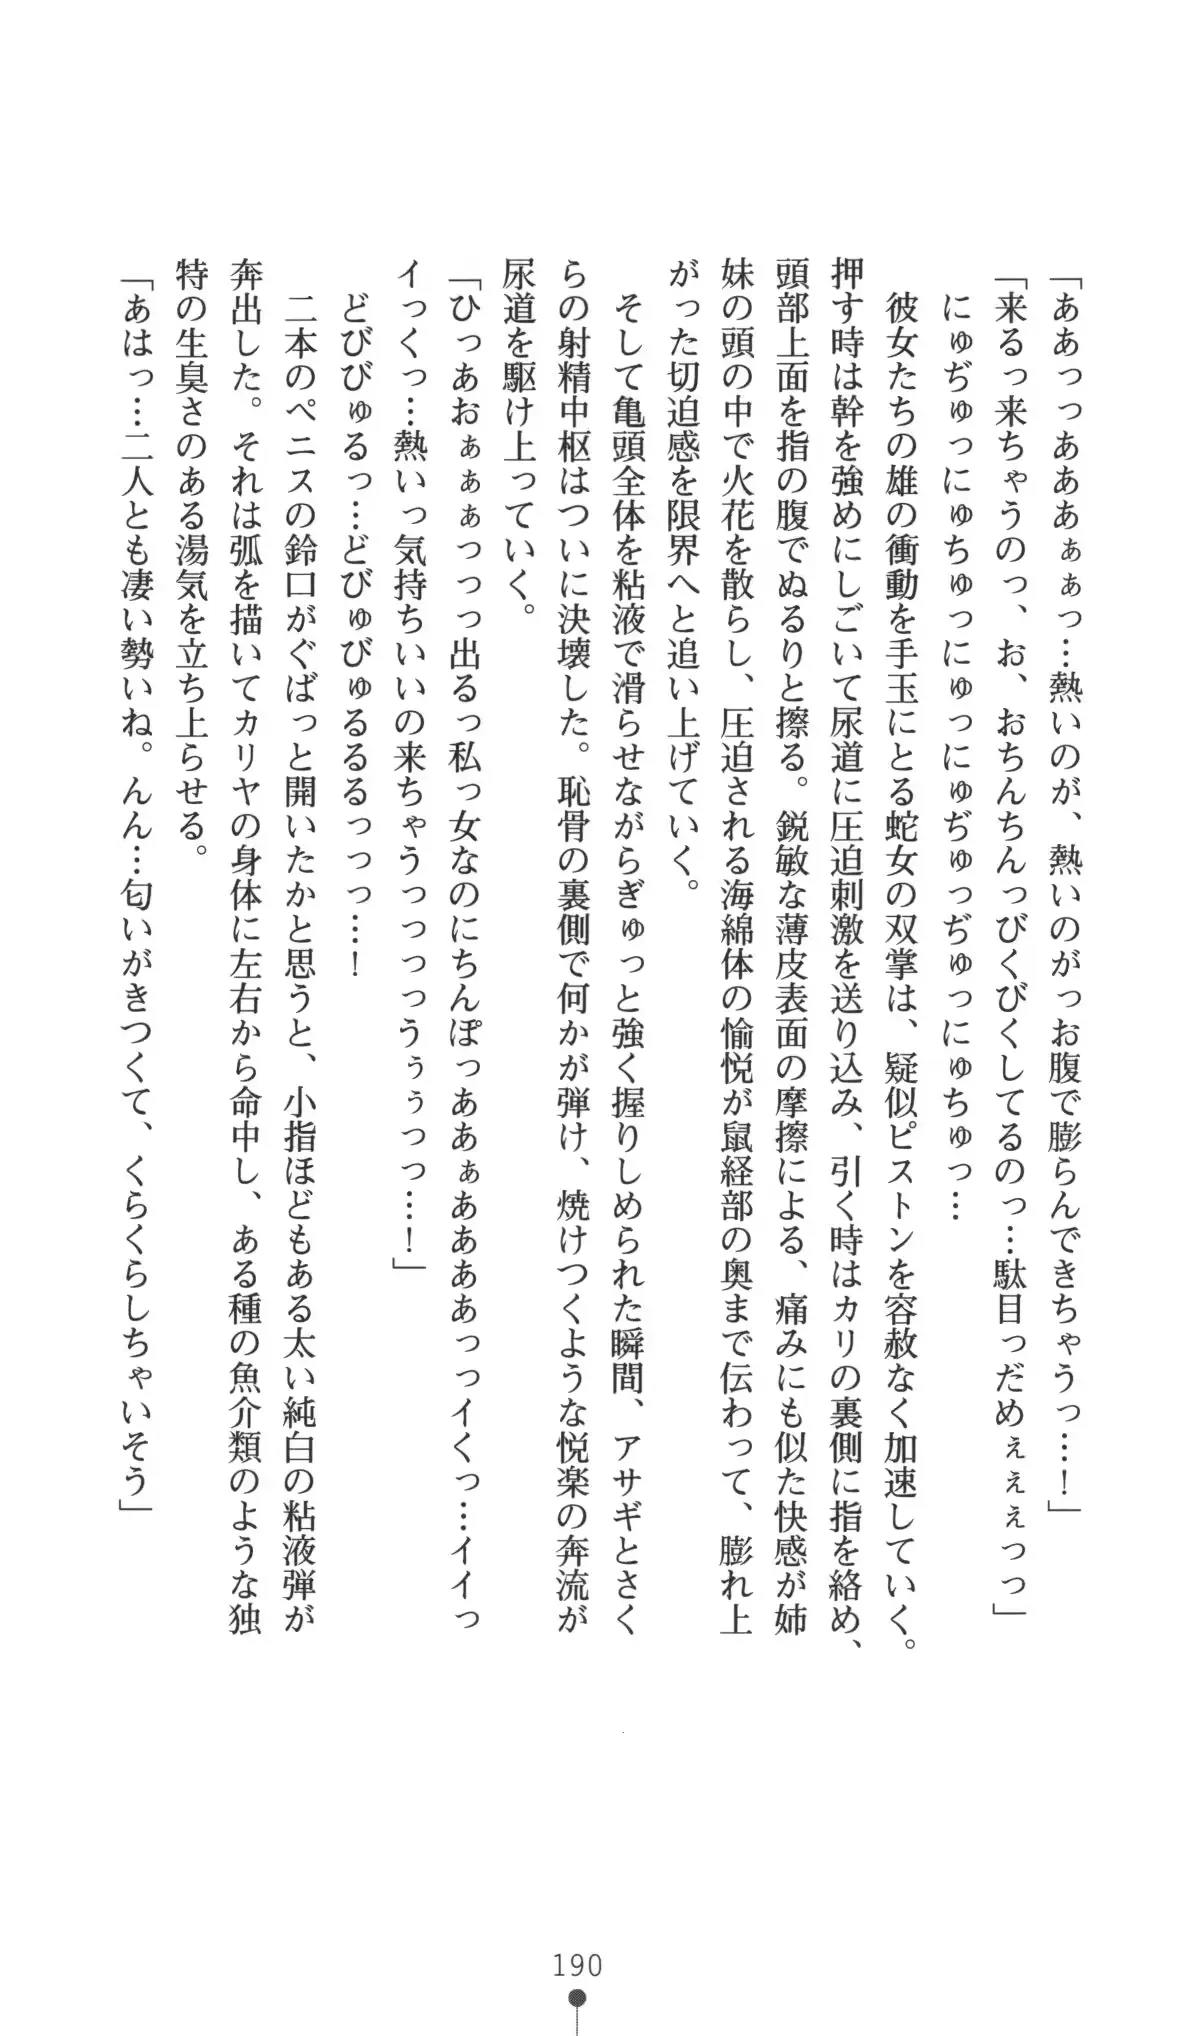 「ああっっあああぁぁっ…熱いのが、熱いのがっお腹で膨らんできちゃうっ…！」
「来るっ来ちゃうのっ、お、おちんちんっびくびくしてるのっ…駄目っだめぇぇぇっっ」
にゅぢゅっにゅちゅっにゅっにゅぢゅっぢゅっにゅちゅっ…
彼女たちの雄の衝動を手玉にとる蛇女の双掌は、疑似ピストンを容赦なく加速していく。
押す時は幹を強めにしごいて尿道に圧迫刺激を送り込み、引く時はカリの裏側に指を絡め、
頭部上面を指の腹でぬるりと擦る。鋭敏な薄皮表面の摩擦による、痛みにも似た快感が姉
妹の頭の中で火花を散らし、圧迫される海綿体の愉悦が鼠経部の奥まで伝わって、膨れ上
がった切迫感を限界へと追い上げていく。
そして亀頭全体を粘液で滑らせながらぎゅっと強く握りしめられた瞬間、アサギとさく
らの射精中枢はついに決壊した。恥骨の裏側で何かが弾け、焼けつくような悦楽の奔流が
尿道を駆け上っていく。
「ひっあおぁぁぁっっっ出るっ私っ女なのにちんぽっああぁああああっっイくっ…イイっ
イっくっ…熱いっ気持ちいいの来ちゃうっっっっうぅぅっっ…！」
どびびゅるっ…どびゅびゅるるるっっっ…！
二本のペニスの鈴口がぐばっと開いたかと思うと、小指ほどもある太い純白の粘液弾が
奔出した。それは弧を描いてカリヤの身体に左右から命中し、ある種の魚介類のような独
特の生臭さのある湯気を立ち上らせる。
「あはっ…二人とも凄い勢いね。んん…匂いがきつくて、くらくらしちゃいそう」
190